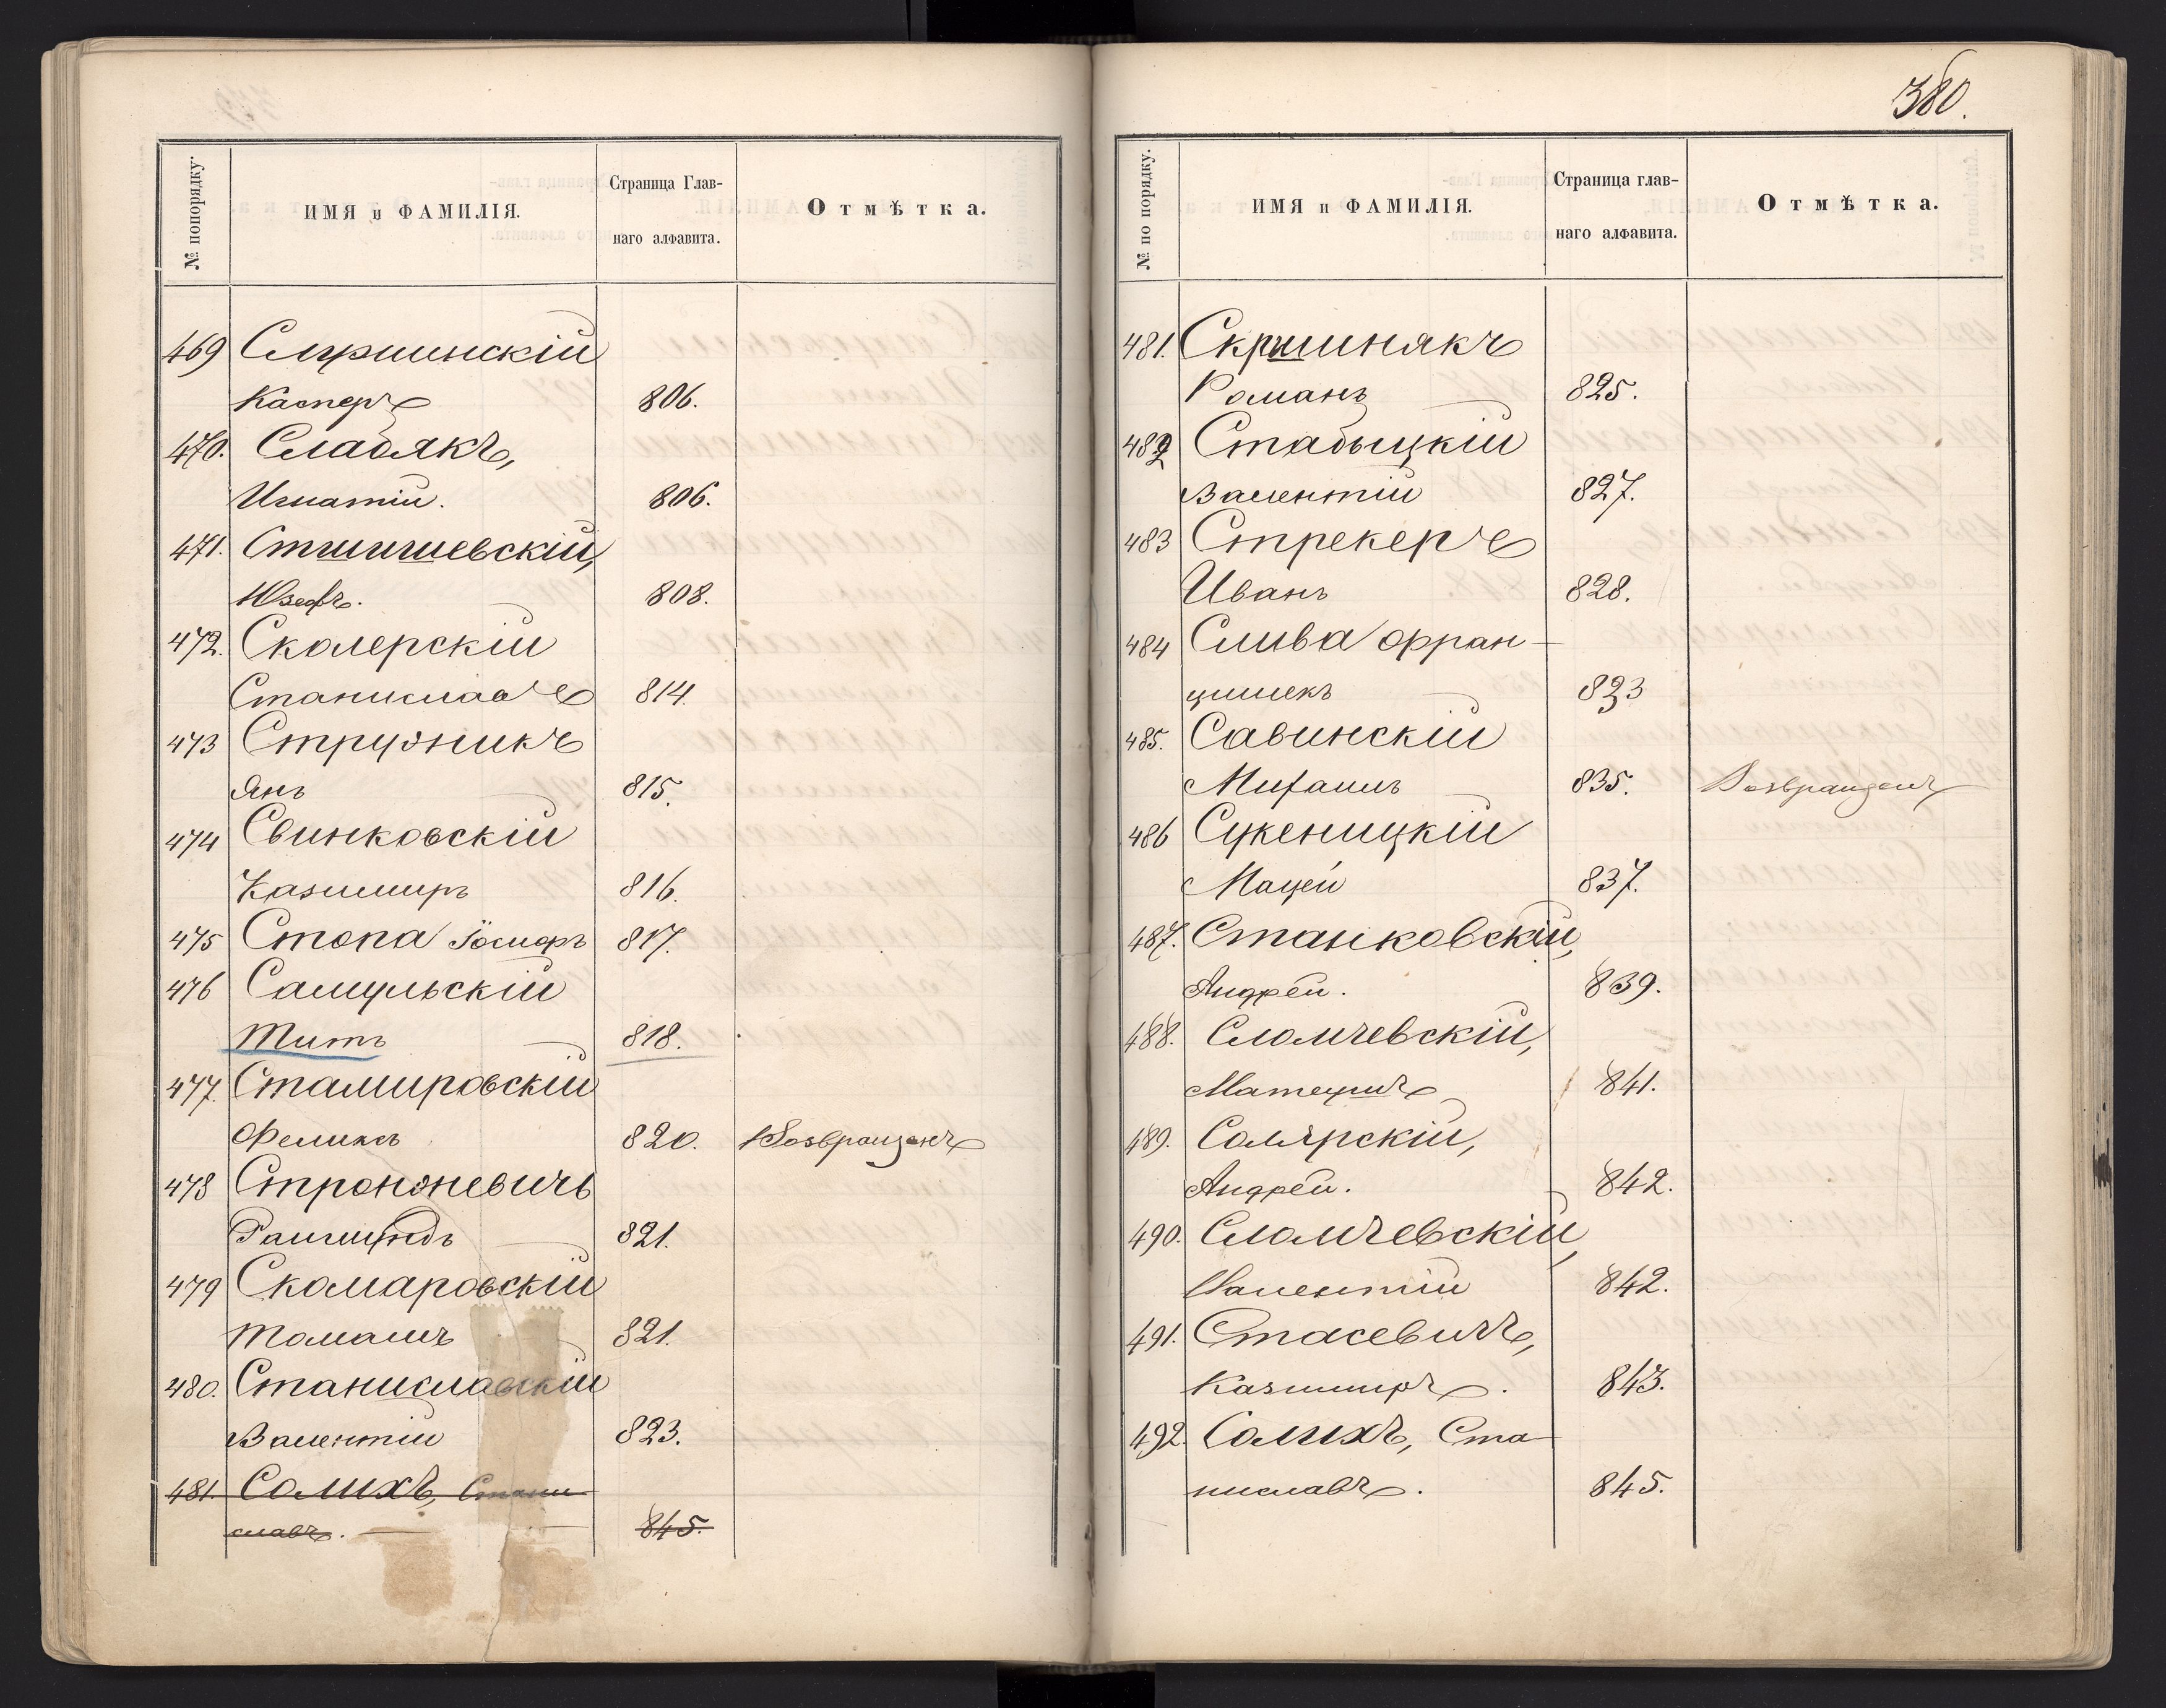 № попорядку.
ИМЯ и ФАМИЛІЯ.
Страница Глав-
наго алфавита.
Отмѣтка.
469 Сляршинскій
Касперъ 806.
470. Слабякъ,
Игнатій. 806.
471. Стшишевскій,
Юзефъ. 808.
472. Скалерскій
Станиславъ 814.
473 Стружникъ
Янъ 815.
474 Свинковскій
Казимиръ 816.
475 Стопа Іосифъ 817.
476 Самульскій
Титъ 818.
477. Стамировскій
Феликсъ 820. Возвращенъ
478 Стронжневичъ
821.
479 Скомаровскій
Томашъ 821.
480. Станиславскій
Валентій 823.
481. Солихъ, Стани
славъ. 845.
380.
№ по порядку.
ИМЯ и ФАМИЛІЯ.
Страница глав-
наго алфавита.
Отмѣтка.
481. Скршинякъ
Романъ 825.
482 Стабыцкій
Валентій 827.
483 Стрекеръ
Иванъ 828.
484 Слива Фран-
цишекъ 823
485. Савинскій
Михаилъ 835. Возвращенъ
486 Сукеницкій
Мацей 837.
487. Станковскій,
Андрей. 839.
488. Сломчевскій,
Матеушъ 841.
489. Солярскій,
Андрей. 842.
490. Сломчевскій,
Валентій 842.
491. Стасевичъ,
Казимиръ. 843.
492. Солихъ, Ста
ниславъ. 845.